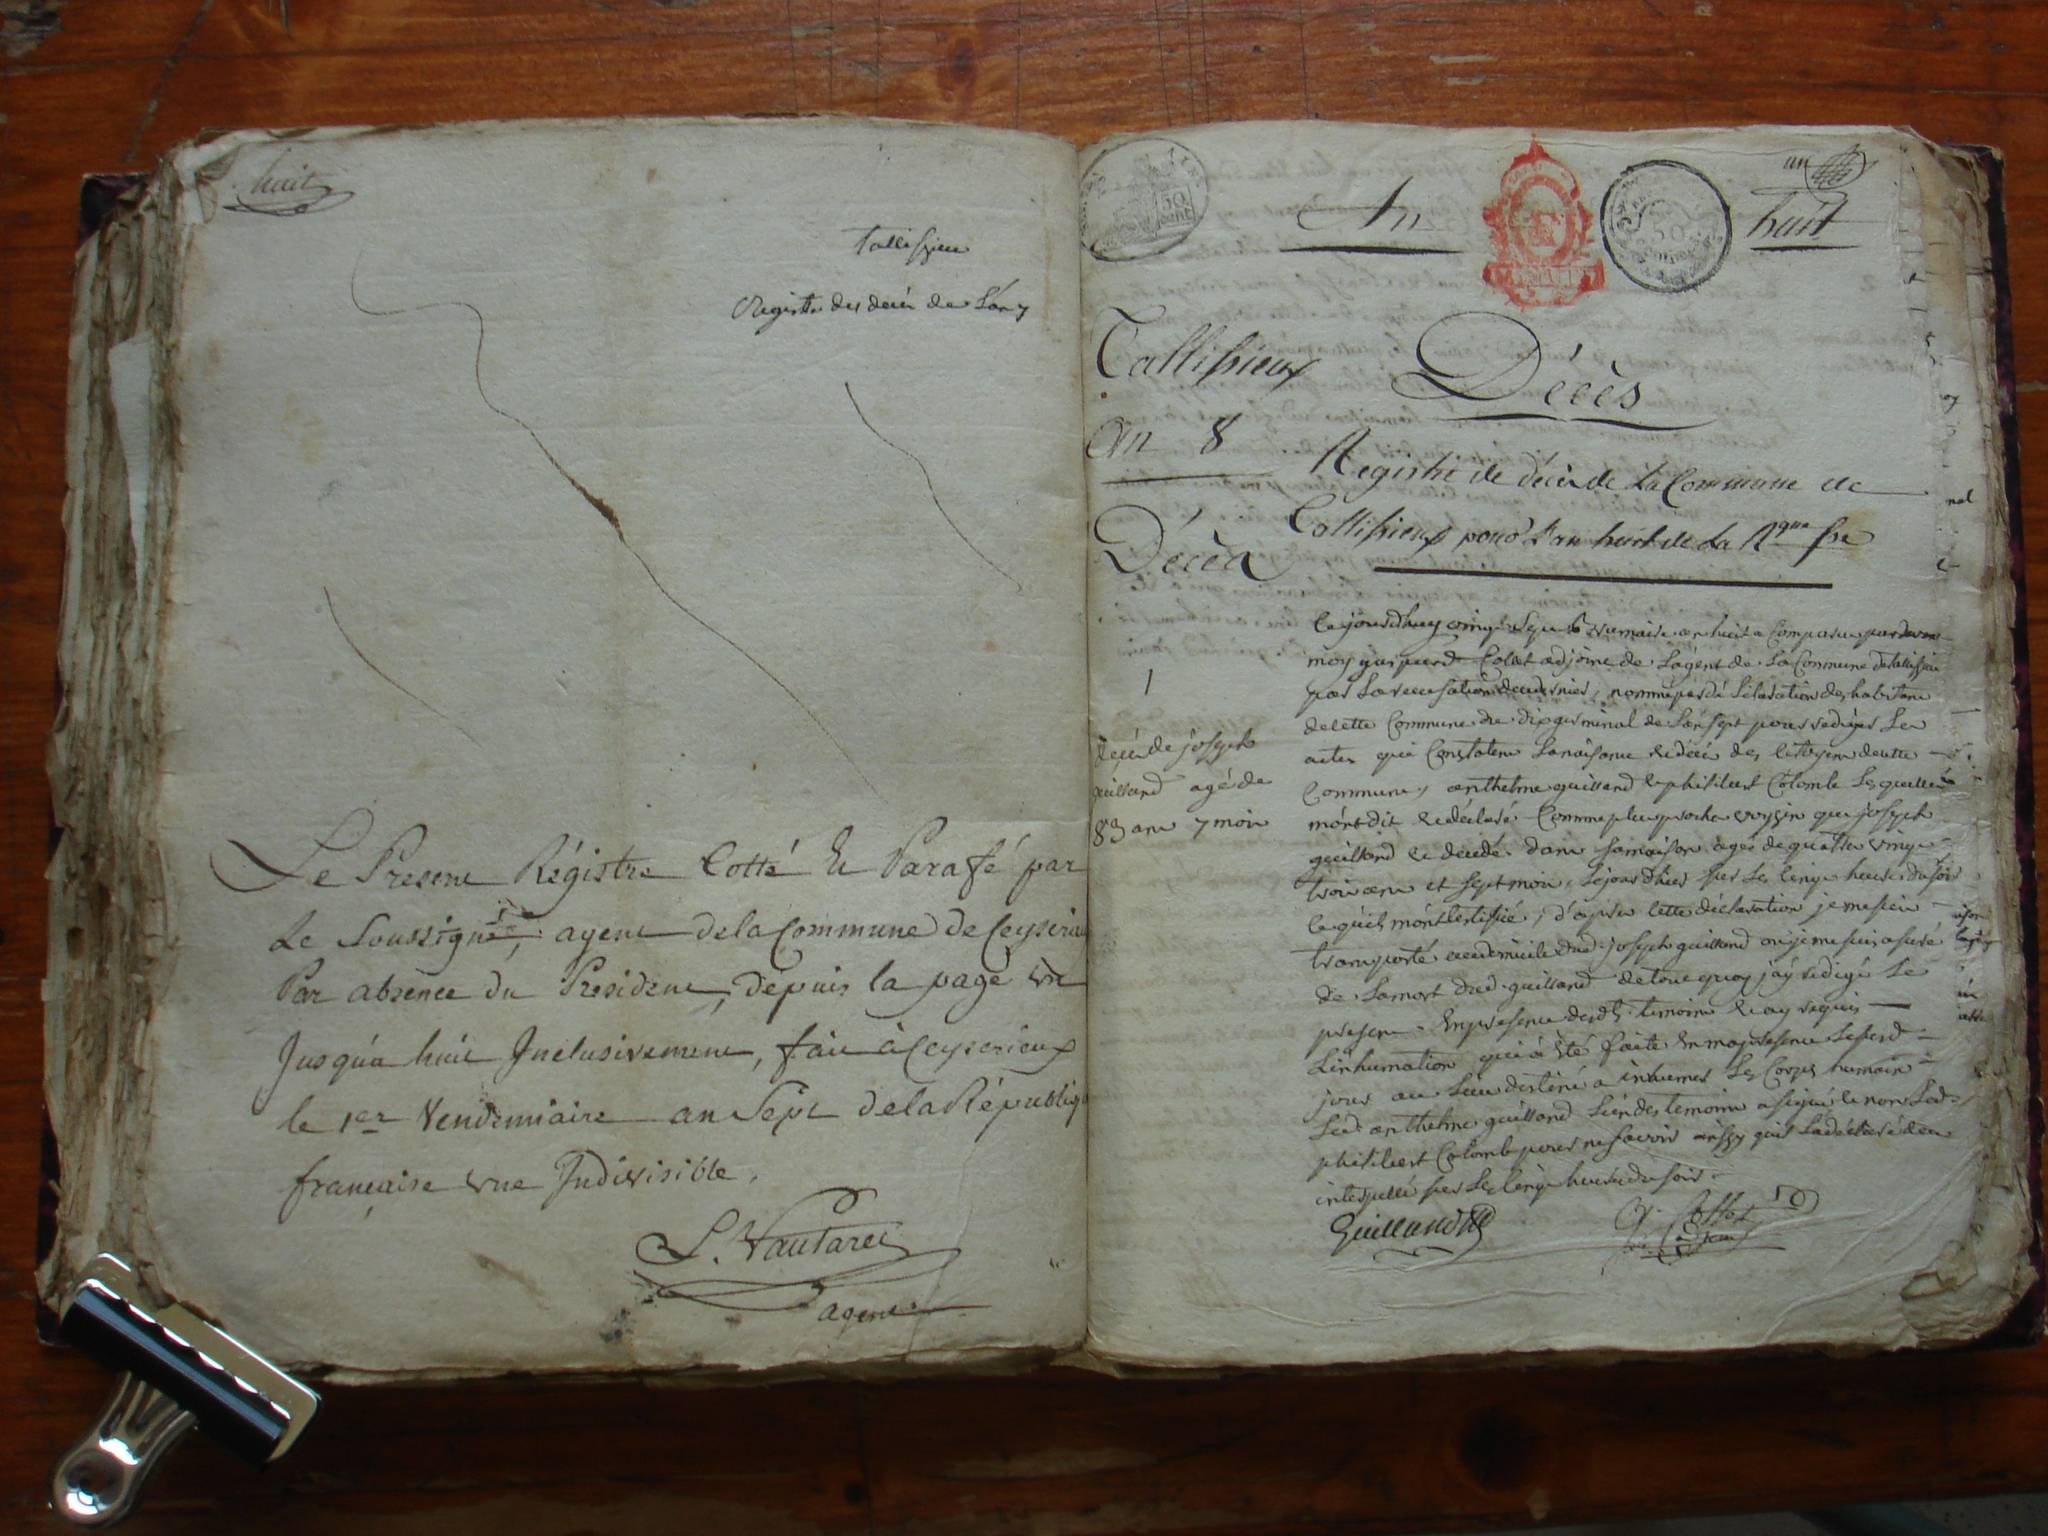 huit
tallissieu
Registre des decés de L'an 7
Le Present Régistre Cotté Et Parafé par
Le Soussigné, agent de la Commune de Ceyserieu
Par absence du Président, depuis la page une
Jusqu'a huit Inclusivement, fait à Ceyserieux
le 1er Vendémiaire an Sept de la Républiq
française une Indivisible.
S. Vautaret
agent
un
An huit
50 cent
50
Tallissieux
Décès
An 8
Décès
Registre de décès de La Commune de
Tallissieux pour L'an huit de La Rque fse
1
décés de joseph
guilland agé de
83 ans 7 mois
Ce jourd'huy vingt Sept brumaire an huit a Comparu par devant
moy Collet adjoint de L'agent de La Commune de tallissieu
par La nommé par de habitans
de cette Commune du dix germinal de L'an Sept pour rediger Les
actes qui Constatent La naisance & décés des Citoyens de cette
Commune, anthelme guilland & philibert Colomb Lesquels
m'ont dit & déclaré Comme plus proche voysin que joseph
guilland est decedé dans sa maison agé de quattre vingt
trois ans et sept mois, Le jour d'hier sur Les cinq heures du soir
Ce qu'ils m'ont Certiffié, d'apres Cette déclaration je me suis
transporté au domicile dud. joseph guilland ou je me suis asuré
de La mort dud. guilland de tout quoy j'ay redigé Le
present En presence desd. temoins & ay requis
L'inhumation qui a été faite En ma presence Le
jour au Lieu destiné a inhumer Les Corps humain
Led. anthelme guilland L'un des temoins a signé & non Led.
philibert Colomb pour ne savoir ainssy qu'il L'a déclaré de ce
interpellé sur Les cinq heures du soir.
Guilland
Collet